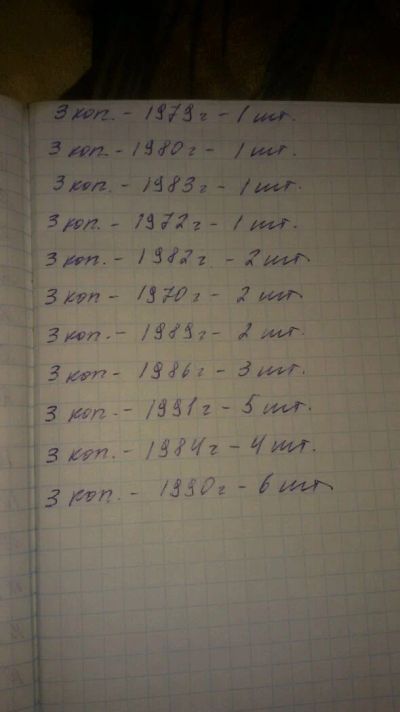 3 коп. - 1979г - 1 шт.
3 коп. - 1980г - 1 шт.
3 коп. - 1983г - 1 шт.
3 коп. - 1972г - 1 шт.
3 коп. - 1982г. - 2 шт
3 коп - 1970г - 2 шт
3 коп. - 1989г - 2 шт
3 коп - 1986г - 3 шт.
3 коп. - 1991г - 5 шт.
3 коп. - 1984г - 4 шт.
3 коп. - 1990г - 6 шт